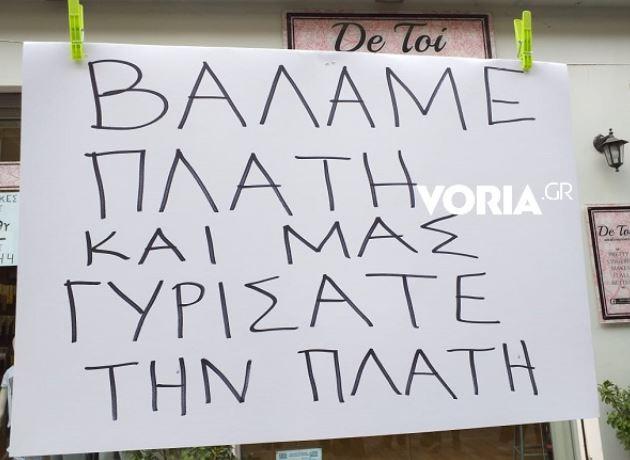 De Toi
ΒΑΛΑΜΕ
ΠΛΑΤΗ
VORIA.GR
ΚΑΙ ΜΑΣ
ΓΥΡΙΣΑΤΕ
ΤΗΝ ΠΛΑΤΗ
De Toi